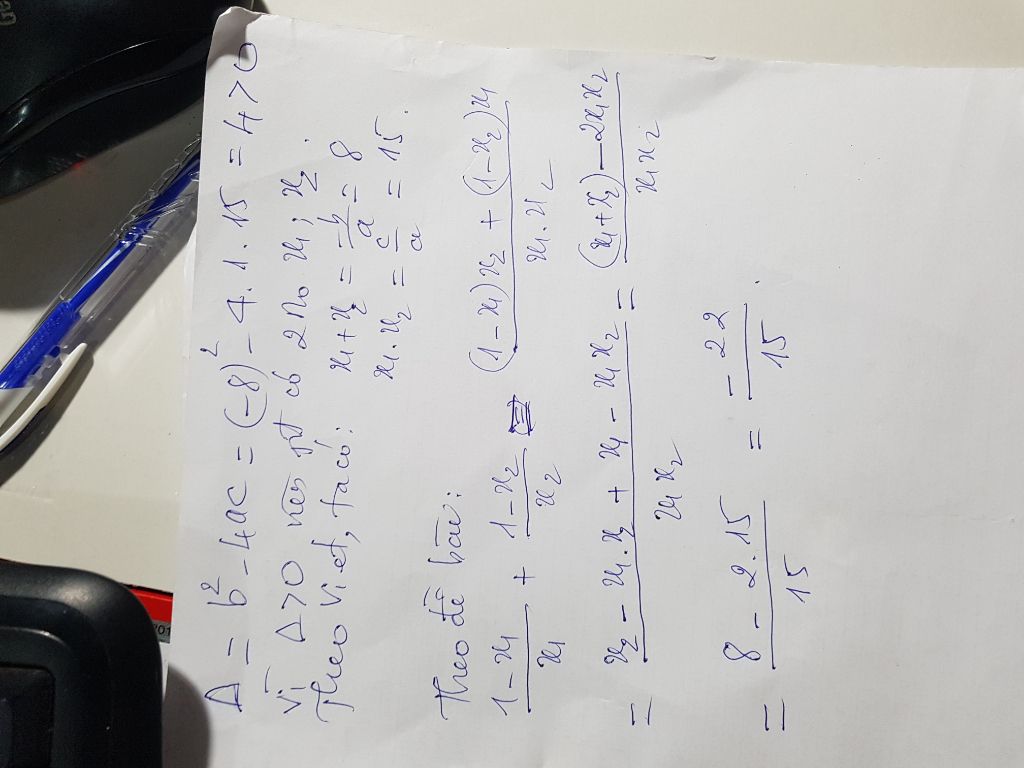 Δ = b² - 4ac = (-8)² - 4.1.15 = 4 > 0
Vì Δ>0 nên pt có 2 no x₁; x₂.
Theo Viet, ta có: x₁+x₂ = -b/a = 8
x₁.x₂ = c/a = 15.
Theo đề bài:
(1-x₁)/x₁ + (1-x₂)/x₂ = ((1-x₁)x₂ + (1-x₂)x₁)/(x₁.x₂)
= (x₂ - x₁.x₂ + x₁ - x₁x₂)/(x₁x₂) = ((x₁+x₂) - 2x₁x₂)/(x₁x₂)
= (8 - 2.15)/15 = -22/15.